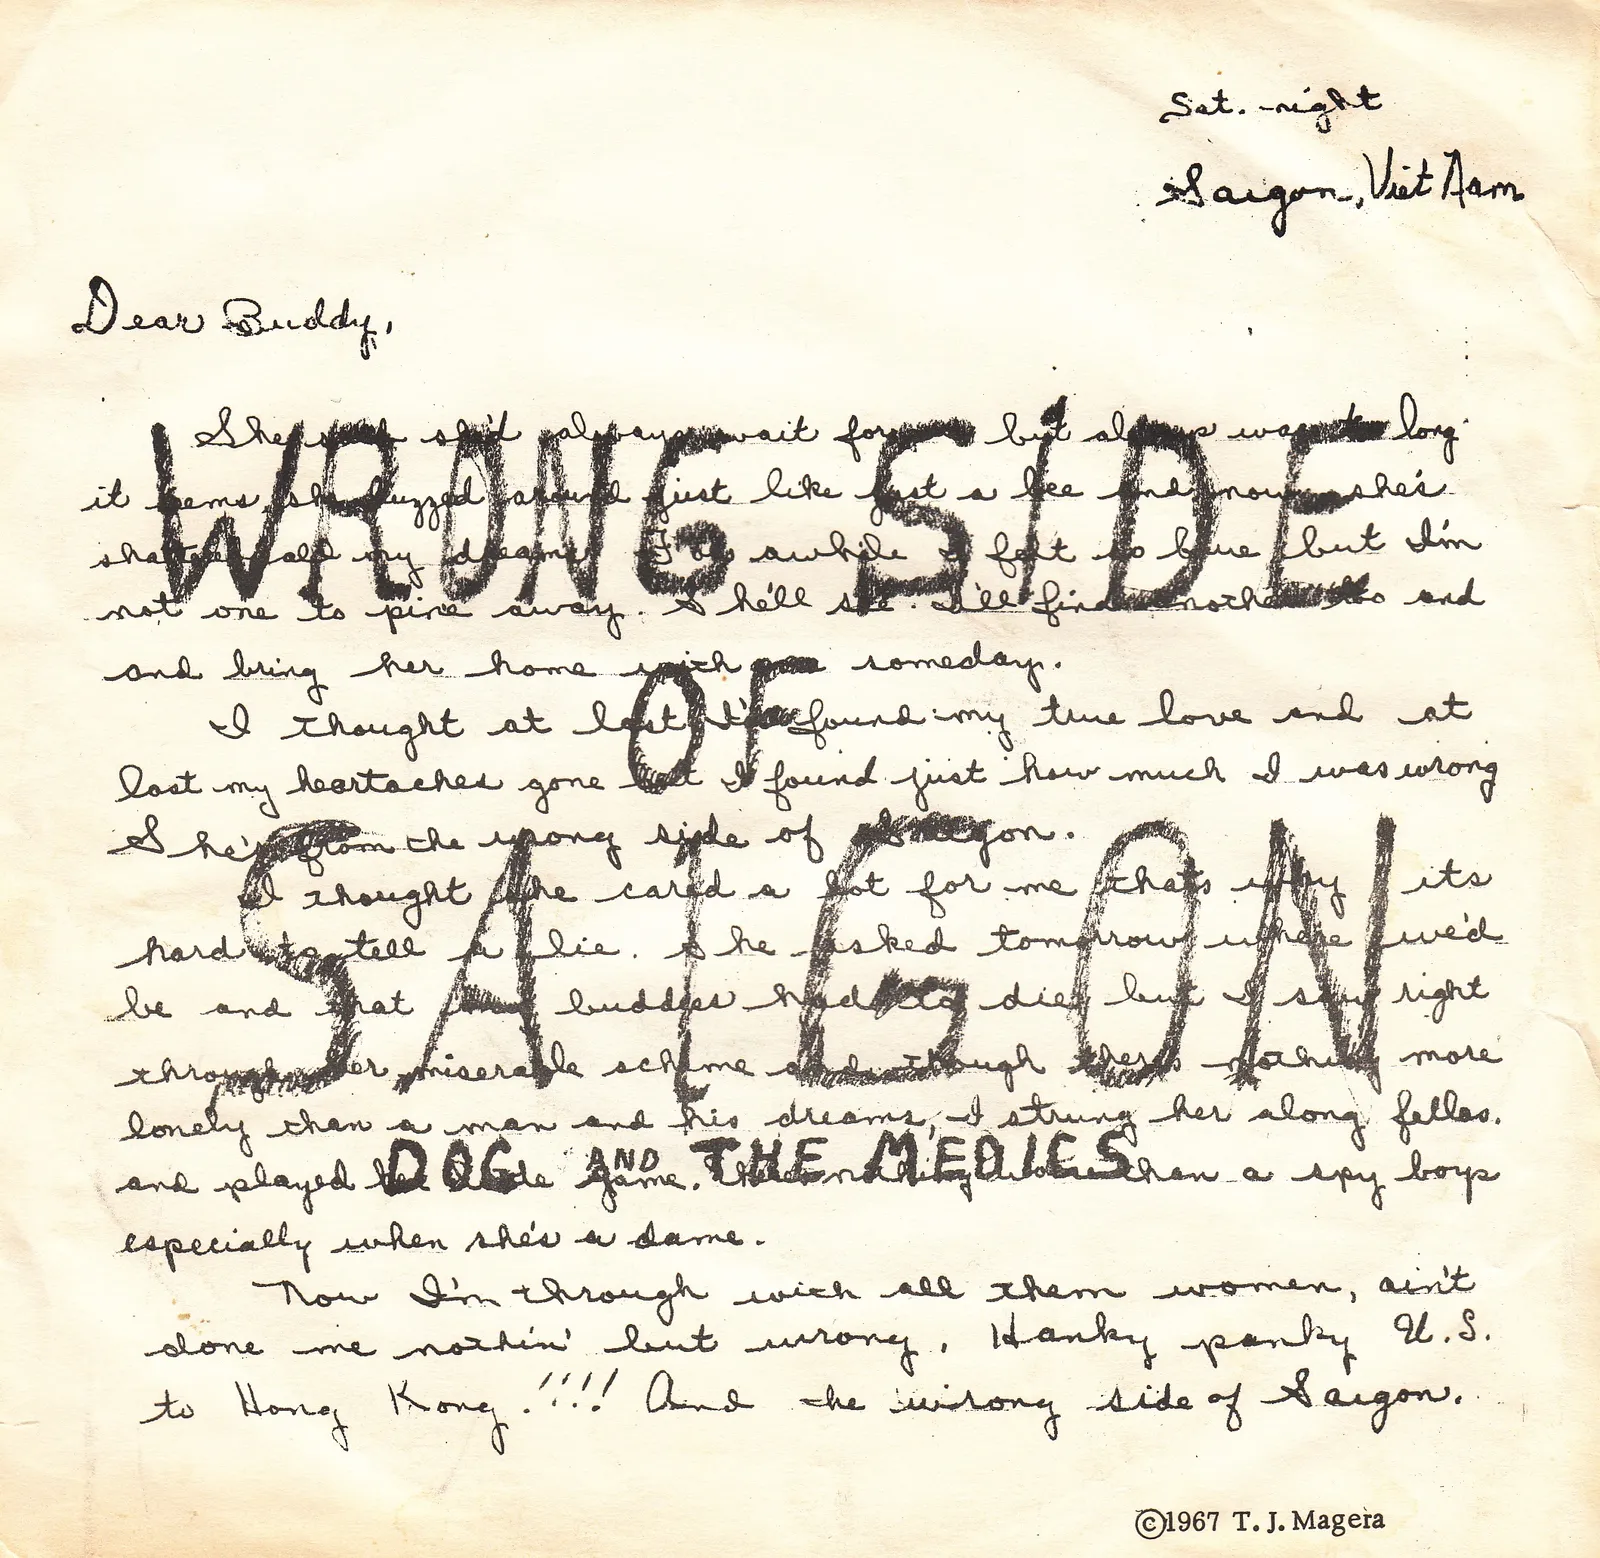 Sat. night
Saigon, Viet Nam
Dear Buddy,
She said she'd always wait for but always was to long
it seems she buzzed around just like just a bee and now she's
shattered all my dreams For awhile I felt so blue but I'm
not one to pine away. She'll see. I'll find another too and
and bring her home with me someday.
I thought at last I've found my true love and at
last my heartaches gone but I found just how much I was wrong
She's from the wrong side of Saigon.
I thought she cared a lot for me thats why its
hard to tell a lie. She asked tomorrow where we'd
be and that buddies had to die, but I saw right
through her miserable scheme and though there's nothing more
lonely than a man and his dreams, I strung her along fellas.
and played her little game. There's nothing worse than a spy boys
especially when she's a dame.
Now I'm through with all them women, ain't
done me nothin' but wrong. Hanky panky U.S.
to Hong Kong.!!!! And the wrong side of Saigon.
WRONG SIDE
OF
SAIGON
DOG AND THE MEDICS
©1967 T. J. Magera